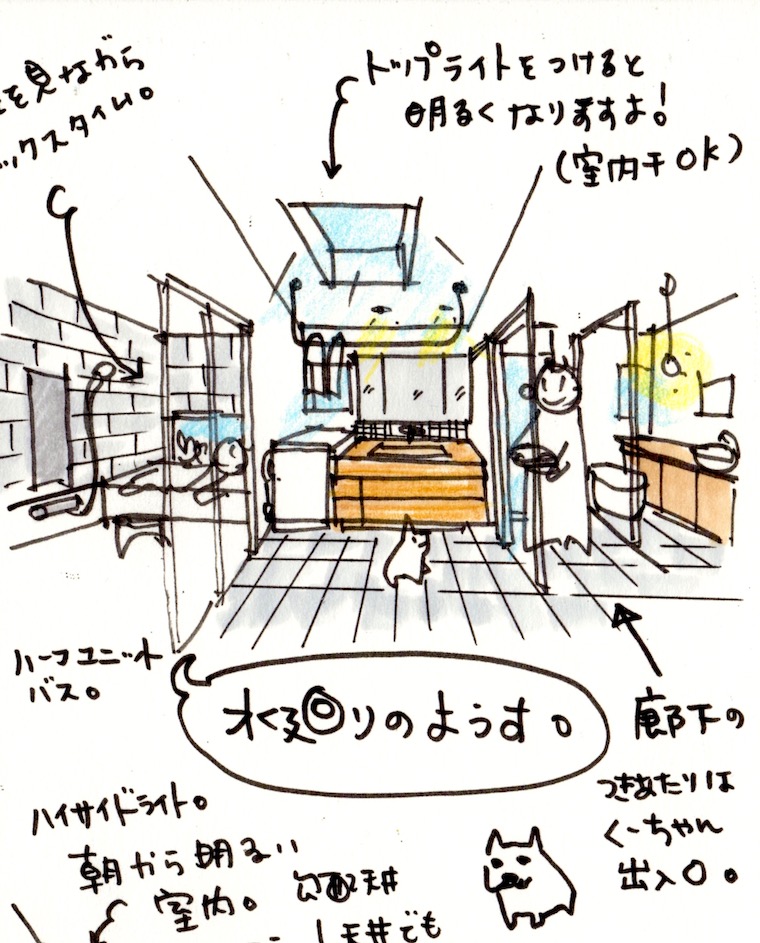 を見ながら
ックスタイム。
トップライトをつけると
明るくなりますよ!
(室内干OK)
ハーフユニット
バス。
水廻りのようす。
廊下の
つきあたりは
くーちゃん
出入口。
ハイサイドライト。
朝から明るい
室内。
勾配天井
天井でも